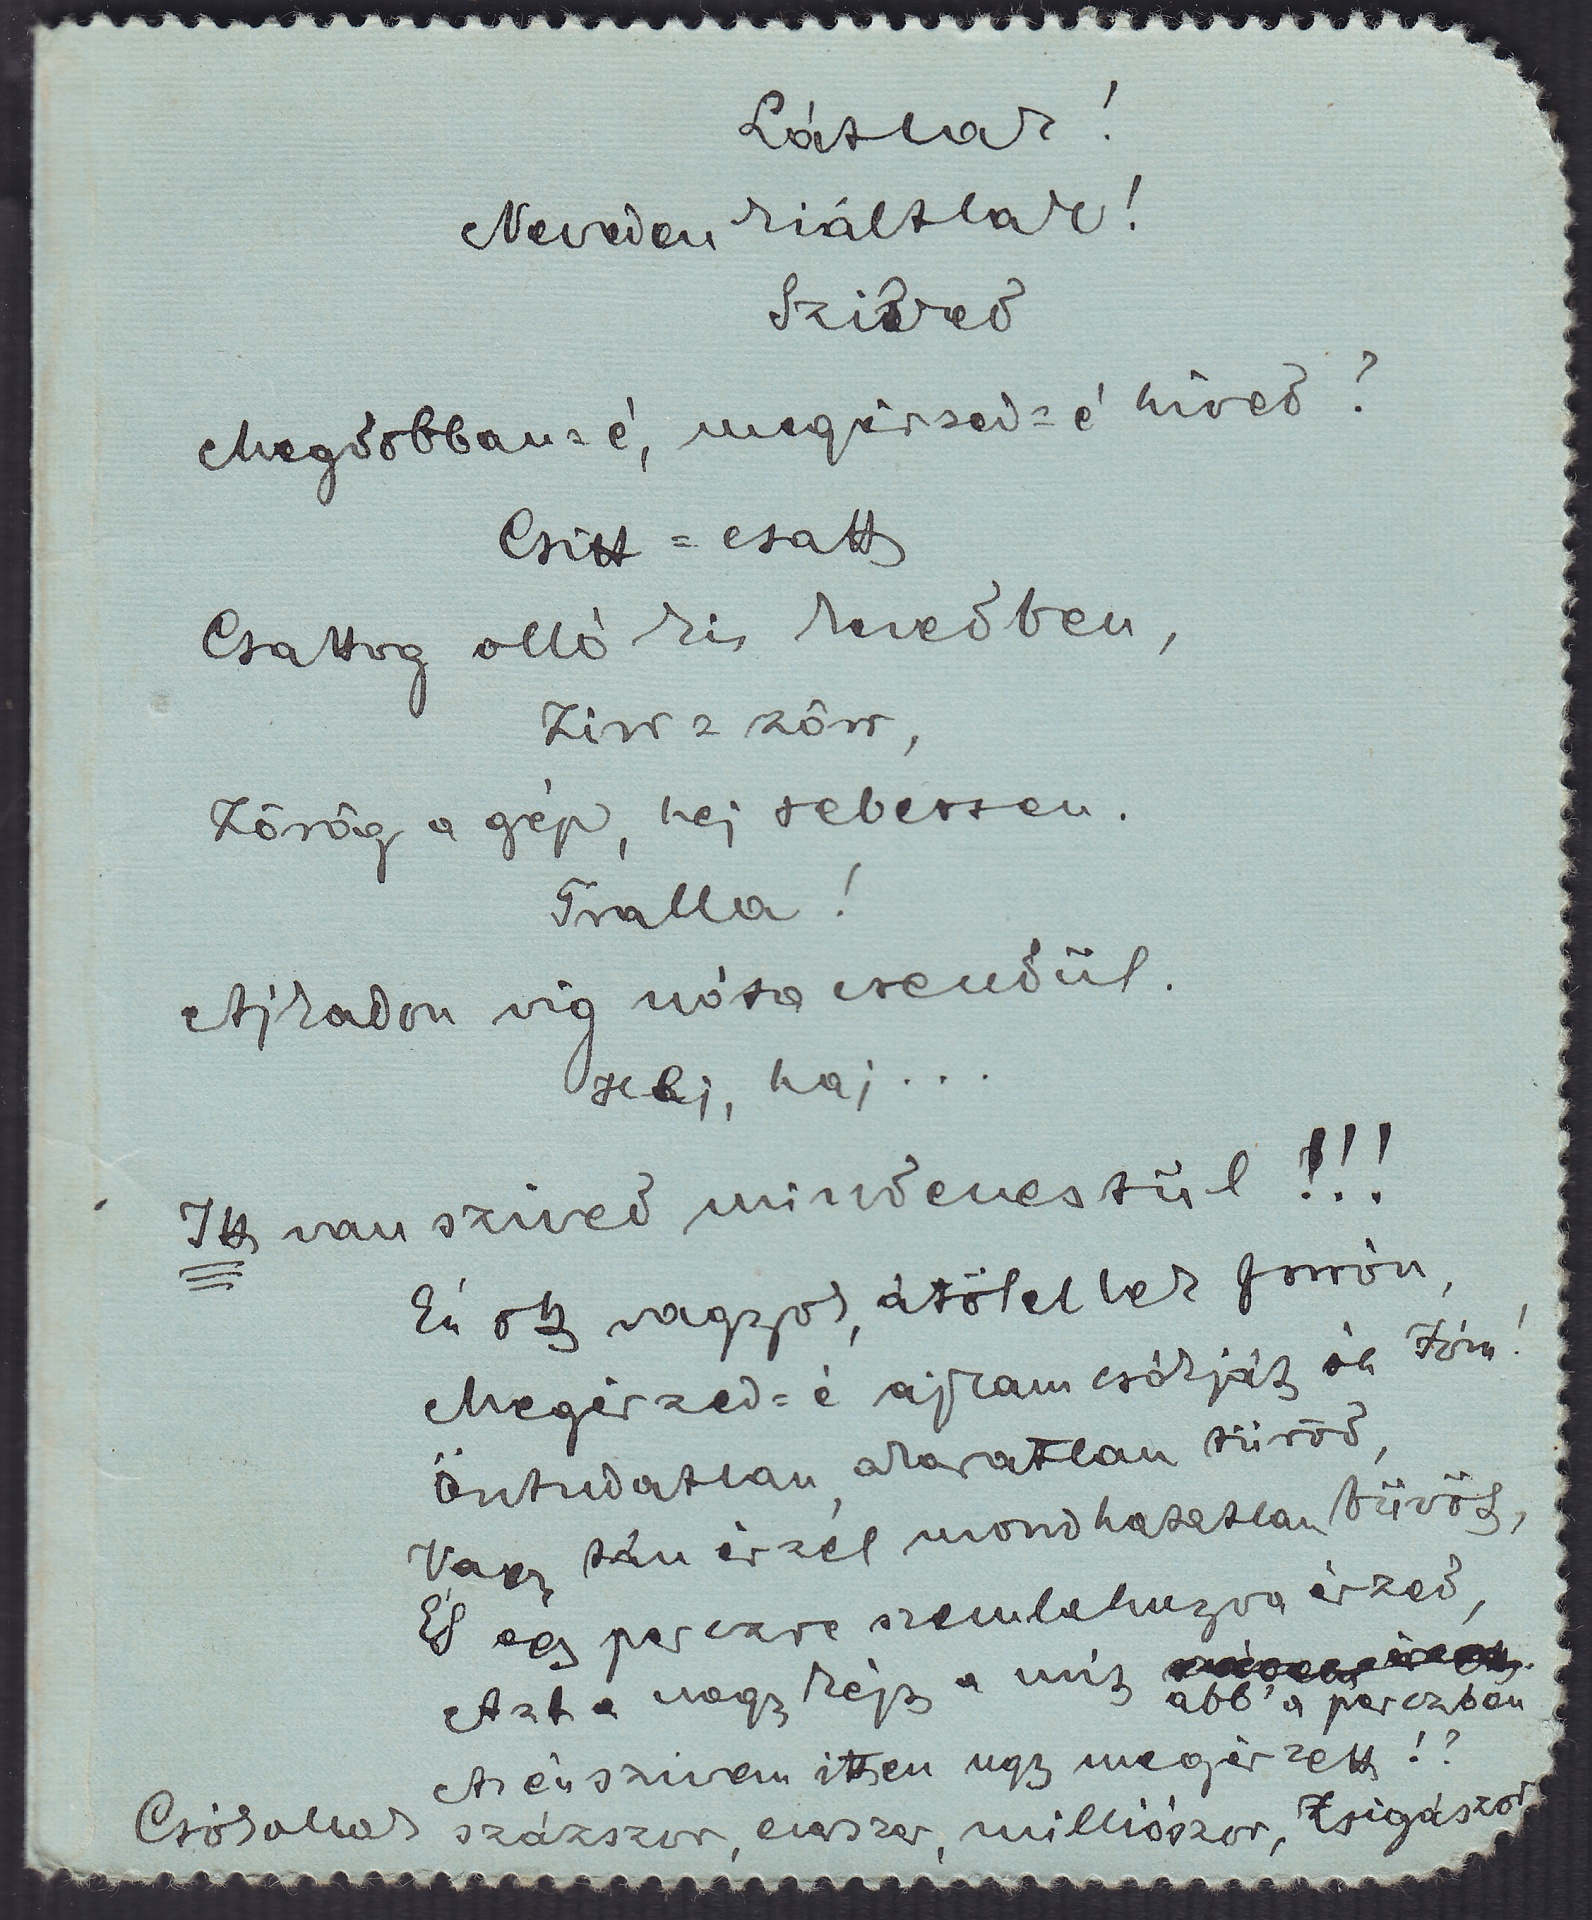 Látlak!
Neveden kiáltlak!
Szíved
Megdobban-é, megérzed-é híved?
Csitt-csatt
Csattog olló kis kezedben,
Zirr-zörr,
Zörög a gép, hej sebessen.
Tralla!
Ajkadon vig nóta csendül.
Hej, haj...
Itt van szived mindenestül!!!
Én ott vagyok, átölellek forrón,
Megérzed-é ajkam csókját óh Zóra!
Öntudatlan, akaratlan türöd,
Vagy tán érzel mondhatatlan büvöt,
És egy perczre szemlehuzva érzed,
Azt a nagy kéjt a mit abb'a perczben
Az én szivem itten ugy megérzett!?
Csókollak százszor, ezerszer, milliószor, Zsigászor